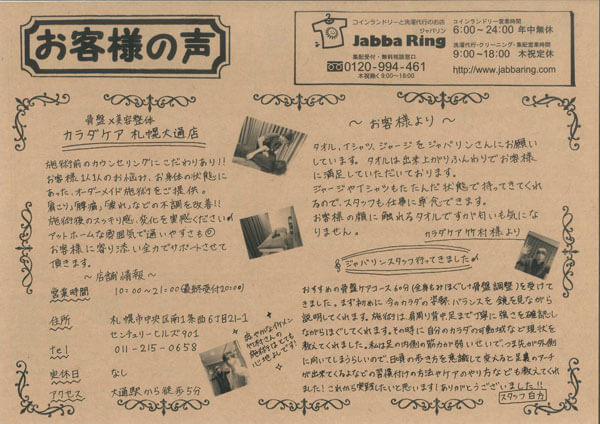 お客様の声
コインランドリーと洗濯代行のお店
ジャバリン
Jabba Ring
集配受付・無料相談窓口
0120-994-461
木祝除く 9:00〜18:00
コインランドリー営業時間
6:00〜24:00 年中無休
洗濯代行・クリーニング・集配営業時間
9:00〜18:00 木祝定休
http://www.jabbaring.com
骨盤×美容整体
カラダケア 札幌大通店
施術前のカウンセリングにこだわりあり!!
お客様1人1人のお悩み、お身体の状態に
あった、オーダーメイド施術をご提供。
肩こり」「腰痛」「疲れ」などの不調を改善!!
施術後のスッキリ感、変化を実感ください
アットホームな雰囲気で通いやすさも
お客様に寄り添い全力でサポートさせて
頂きます。
〜店舗情報〜
営業時間 10:00〜21:00(最終受付20:00)
住所 札幌市中央区南1条西6丁目21-1
センチュリーヒルズ901
tel 011-215-0658
定休日 なし
アクセス 大通駅から徒歩5分
爽やかなイケメン
竹村さんの
施術はとても
心地よしです
〜お客様より〜
タオル、Yシャツ、ジャージをジャバリンさんにお願い
しています。タオルは出来上がりふんわりでお客様
に満足していただいております。
ジャージやYシャツもたたんだ状態で持ってきてくれ
るので、スタッフも仕事に専念できます。
お客様の顔に触れるタオルですので匂いも気にな
りません。
カラダケア竹村様より
ジャバリンスタッフ行ってきました
おすすめの骨盤ケアコース60分(全身もみほぐし+骨盤調整)を受けて
きました。まず初めに今のカラダの姿勢、バランスを鏡を見ながら
説明してくれます。施術は、肩周り背中足まで丁寧に強さを確認し
ながらほぐしてくれます。その時に自分のカラダの可動域など現状を
教えてくれました。私は足の内側の筋力が弱いせいでつま先が外側
に向いてしまうらしいので、日頃の歩き方を意識して変えると土裏のアーチ
が出来てくるよなどの習慣付けの方法やケアのやり方なども教えてくれ
ました！これから実践したいと思います！ありがとうございました!!
スタッフ 白方